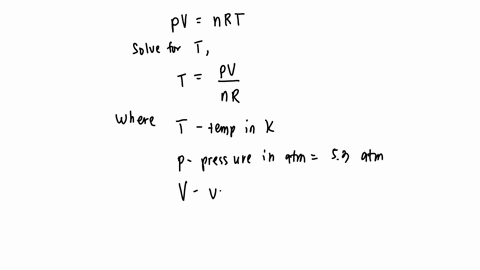 pV = nRT
Solve for T,
T = PV / nR
Where T - temp in K
p - pressure in atm = 5.3 atm
V - v